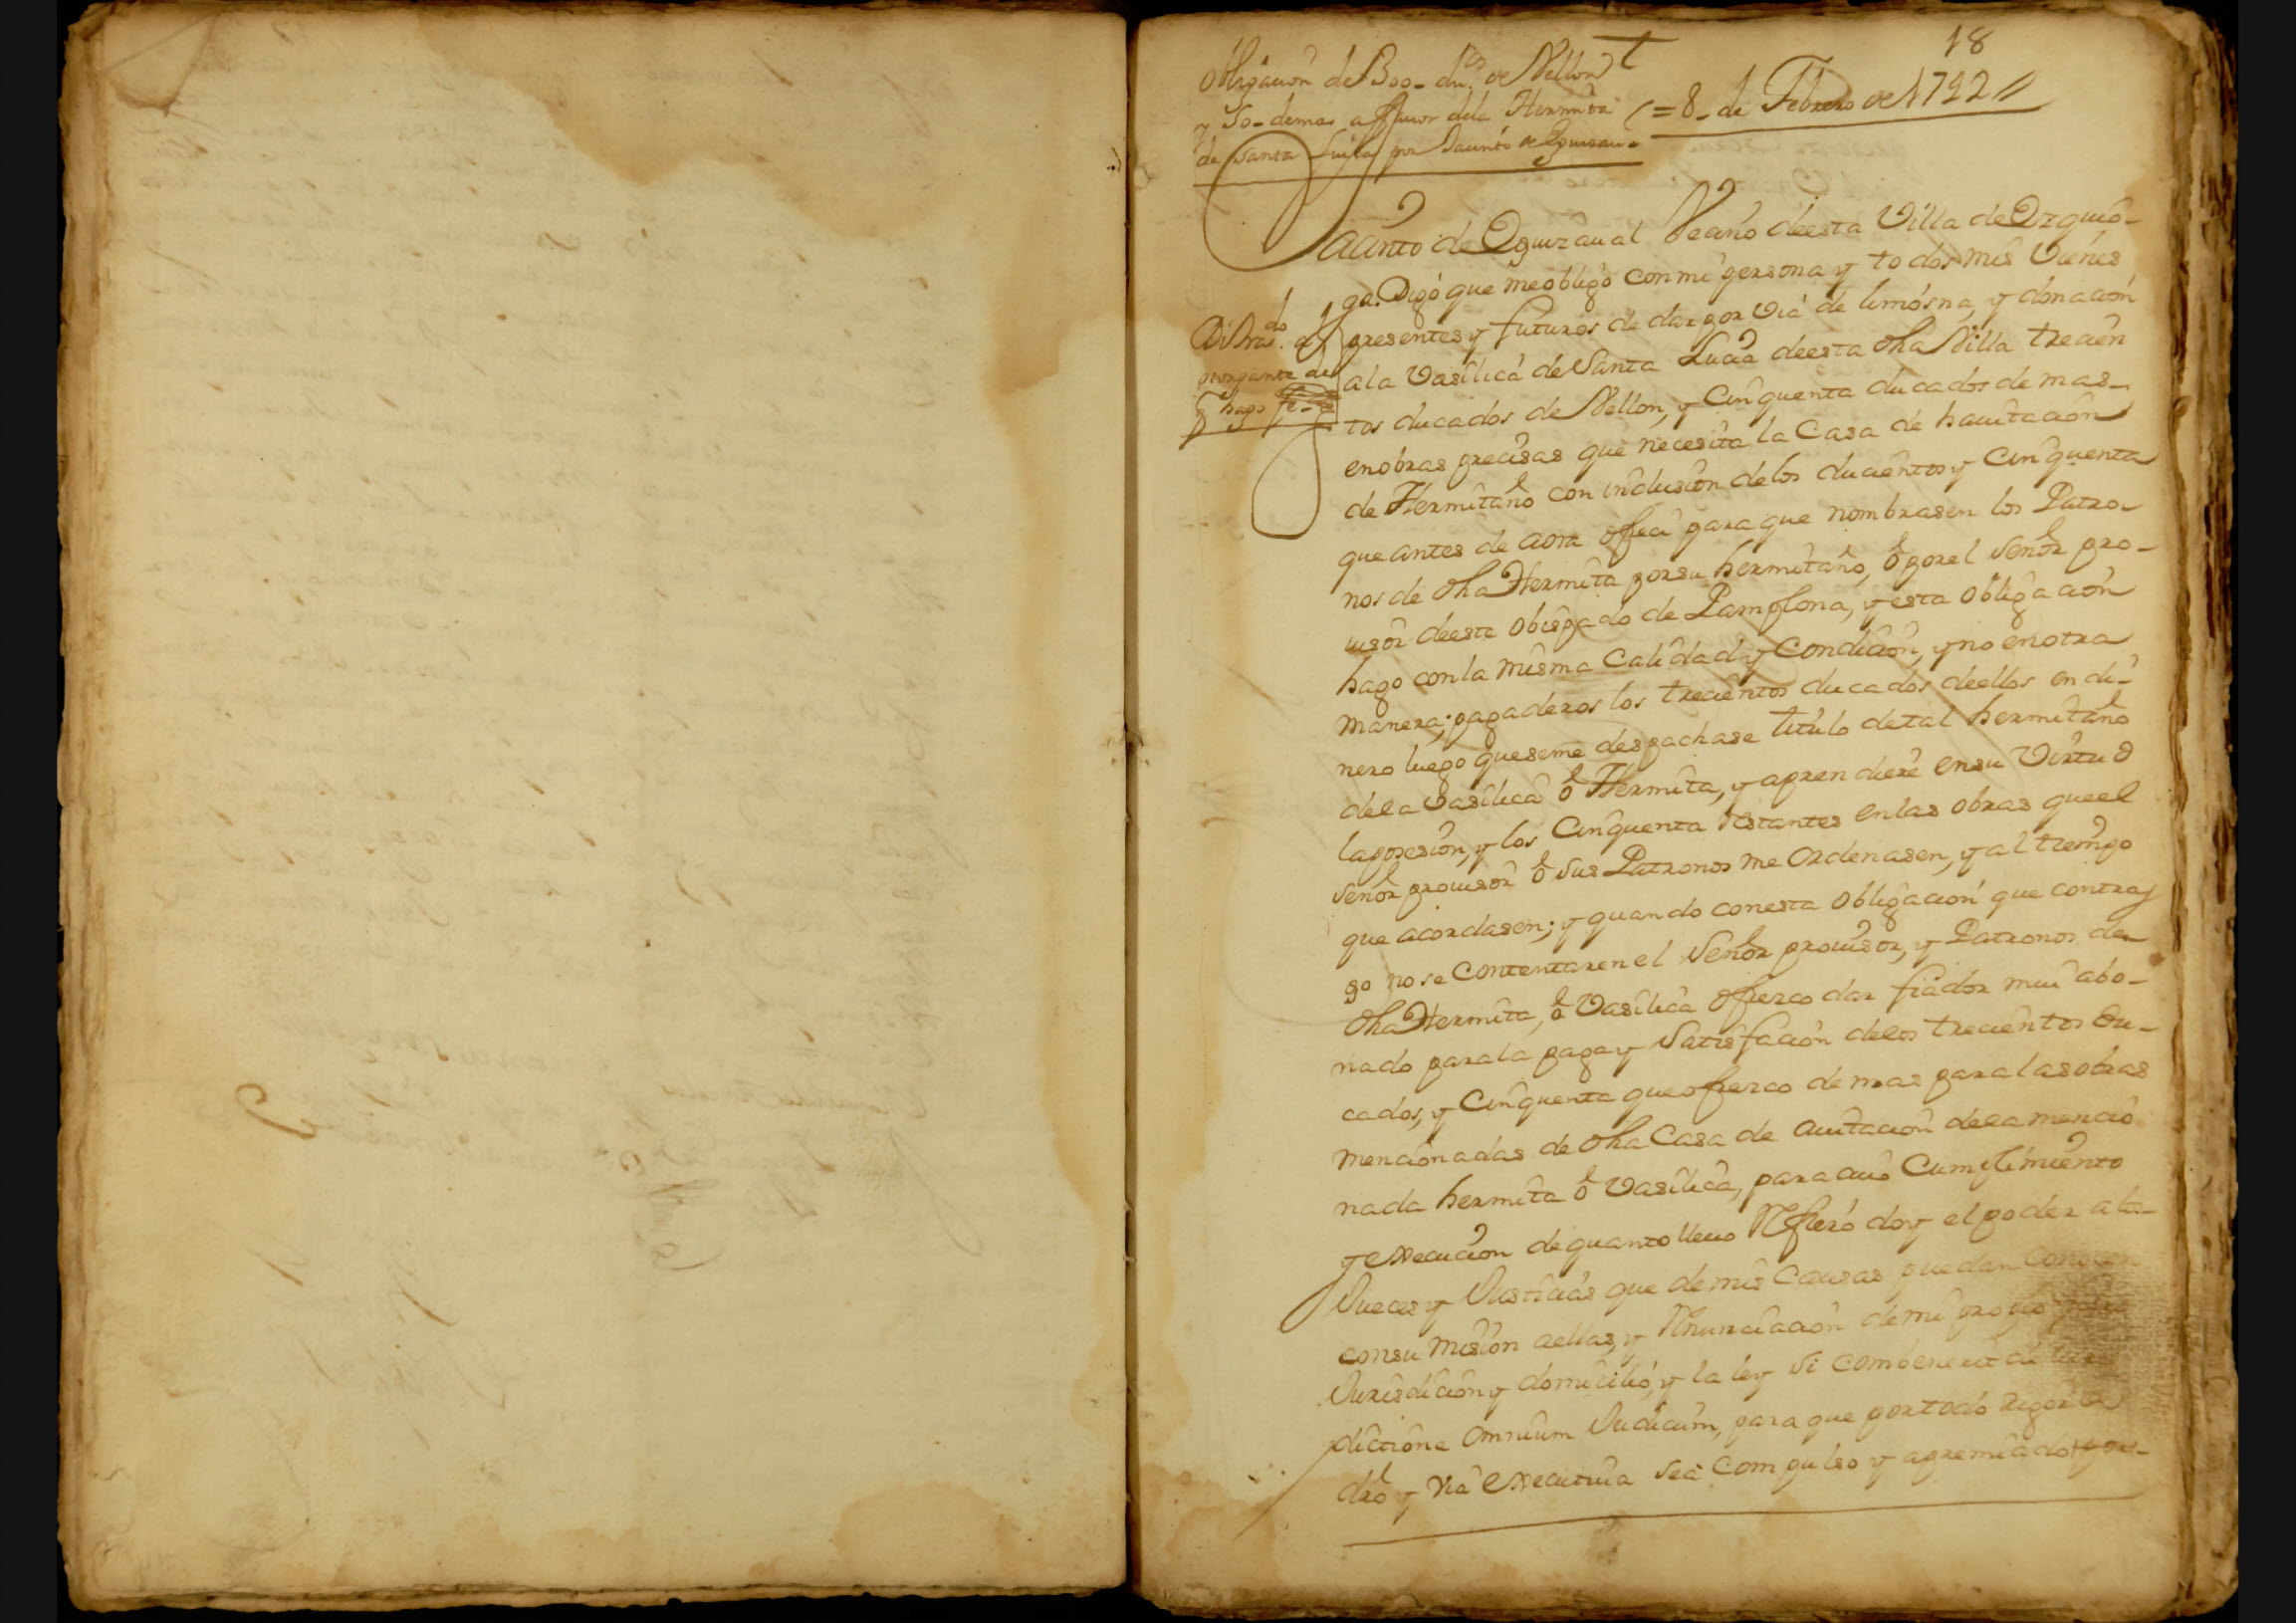 18
t
obligacion de 300_ du.os de Vellon
y 50_demas a ffavor dela Hermita
de Santa Lucia por Jacinto de Eguzau.l
= 8_ de Febrero de 1792
Jacinto de Eguzaual Vecino deesta Villa de Ozquio_
ga. Digo que meobligo con mi persona y todos mis Vienes
presentes y futuros de dar por via de limosna, y donacion
ala Vasilica de Santa Lucia deesta dha Villa trecien
tos ducados de Vellon, y Cinquenta ducados de mas_
enobras precisas que necesita la Casa de havitacion
de Hermitaño con inclusion delos ducientos y Cinquenta
que antes de aora ofreci para que nombrasen los Patro_
nos de dha Hermita por su hermitaño, ó por el Señor pro_
uisor deeste obispado de Pamplona, y esta obligacion
hago con la misma Calidad y Condicion, y no en otra
manera; pagaderos los trecientos ducados deellos en di_
nero luego queseme despachase titulo detal hermitaño
dela Vasilica ó Hermita, y aprendiere ensu Virtud
laposesion, y los Cinquenta restantes en las obras queel
Señor prouisor ó sus Patronos me ordenasen, y al tiempo
que acordasen; y quando conesta obligacion que contray
go no se Contentaren el Señor prouisor, y Patronos de
dha Hermita, ó Vasilica ofrezco dar fiador mui abo_
nado parala paga y Satisfacion delos trecientos du_
cados, y Cinquenta que ofrezco demas para las obras
mencionadas de dha Casa de avitacion dela mencio
nada hermita ó Vasilica, para cuio Cumplimiento
y execucion dequanto lleuo Refiero doy el poder alos
Jueces y Justicias que demis Causas puedan conocer
consu mision aellas, y Renunciacion demi propio
Jurisdicion y domicilio, y la ley Si combenerit de
dictione omnium Judicum, para que por todo rigor de
dro y via executiva Sea Compulso y apremiado
do
otorgante de
hago fe